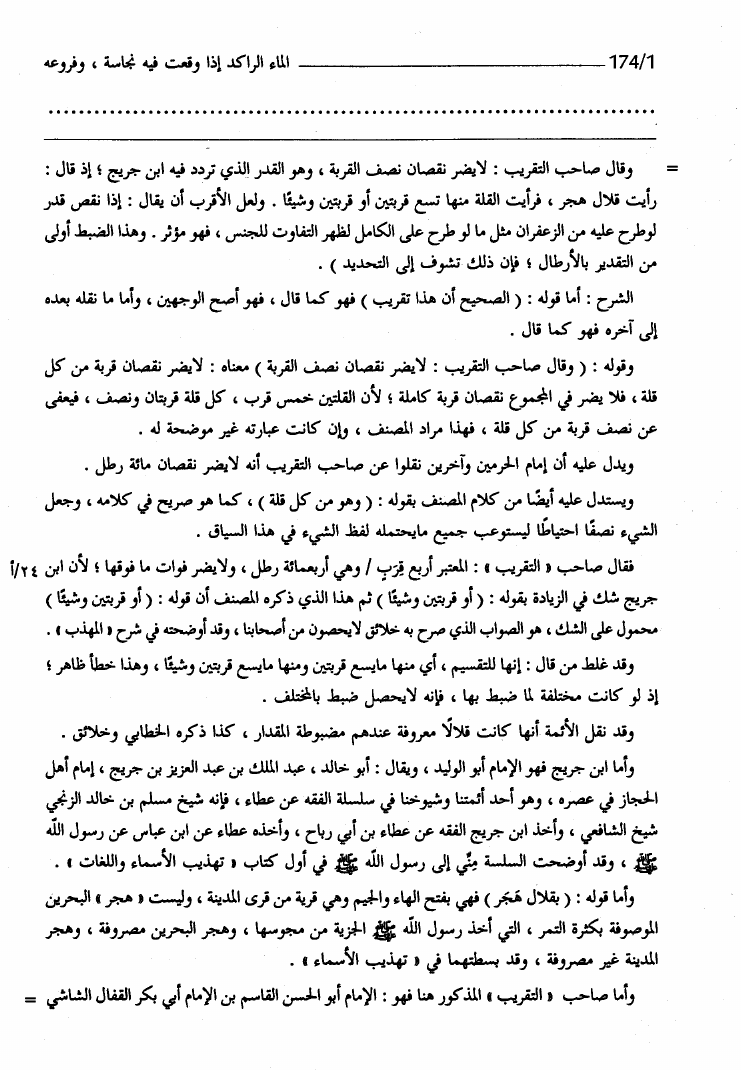 174/1 ــــــــــــــــــــــــــــــــــ الماء الراكد إذا وقعت فيه نجاسة ، وفروعه
................................................................................
= وقال صاحب التقريب : لايضر نقصان نصف القربة ، وهو القدر الذي تردد فيه ابن جريج ؛ إذ قال :
رأيت قلال هجر ، فرأيت القلة منها تسع قربتين أو قربتين وشيئًا . ولعل الأقرب أن يقال : إذا نقص قدر
لوطرح عليه من الزعفران مثل ما لو طرح على الكامل لظهر التفاوت للجنس ، فهو مؤثر . وهذا الضبط أولى
من التقدير بالأرطال ؛ فإن ذلك تشوف إلى التحديد ) .
الشرح : أما قوله : ( الصحيح أن هذا تقريب ) فهو كما قال ، فهو أصح الوجهين ، وأما ما نقله بعده
إلى آخره فهو كما قال .
وقوله : ( وقال صاحب التقريب : لايضر نقصان نصف القربة ) معناه : لايضر نقصان قربة من كل
قلة ، فلا يضر في المجموع نقصان قربة كاملة ؛ لأن القلتين خمس قرب ، كل قلة قربتان ونصف ، فيعفى
عن نصف قربة من كل قلة ، فهذا مراد المصنف ، وإن كانت عبارته غير موضحة له .
ويدل عليه أن إمام الحرمين وآخرين نقلوا عن صاحب التقريب أنه لايضر نقصان مائة رطل .
ويستدل عليه أيضًا من كلام المصنف بقوله : ( وهو من كل قلة ) ، كما هو صريح في كلامه ، وجعل
الشيء نصفًا احتياطًا ليستوعب جميع مايحتمله لفظ الشيء في هذا السياق .
فقال صاحب « التقريب » : المعتبر أربع قِرَبٍ / وهي أربعمائة رطل ، ولايضر فوات ما فوقها ؛ لأن ابن ٢٤/أ
جريج شك في الزيادة بقوله : ( أو قربتين وشيئًا ) ثم هذا الذي ذكره المصنف أن قوله : ( أو قربتين وشيئًا )
محمول على الشك ، هو الصواب الذي صرح به خلائق لايحصون من أصحابنا ، وقد أوضحته في شرح « المهذب » .
وقد غلط من قال : إنها للتقسيم ، أي منها مايسع قربتين ومنها مايسع قربتين وشيئًا ، وهذا خطأ ظاهر ؛
إذ لو كانت مختلفة لما ضبط بها ، فإنه لايحصل ضبط بالمختلف .
وقد نقل الأئمة أنها كانت قلالًا معروفة عندهم مضبوطة المقدار ، كذا ذكره الخطابي وخلائق .
وأما ابن جريج فهو الإمام أبو الوليد ، ويقال : أبو خالد ، عبد الملك بن عبد العزيز بن جريج ، إمام أهل
الحجاز في عصره ، وهو أحد أئمتنا وشيوخنا في سلسلة الفقه عن عطاء ، فإنه شيخ مسلم بن خالد الزنجي
شيخ الشافعي ، وأخذ ابن جريج الفقه عن عطاء بن أبي رباح ، وأخذه عطاء عن ابن عباس عن رسول الله
ﷺ ، وقد أوضحت السلسة مِنِّي إلى رسول الله ﷺ في أول كتاب « تهذيب الأسماء واللغات » .
وأما قوله : ( بقلال هَجَر ) فهي بفتح الهاء والجيم وهي قرية من قرى المدينة ، وليست « هجر » البحرين
الموصوفة بكثرة التمر ، التي أخذ رسول الله ﷺ الجزية من مجوسها ، وهجر البحرين مصروفة ، وهجر
المدينة غير مصروفة ، وقد بسطتهما في « تهذيب الأسماء » .
وأما صاحب « التقريب » المذكور هنا فهو : الإمام أبو الحسن القاسم بن الإمام أبي بكر القفال الشاشي =